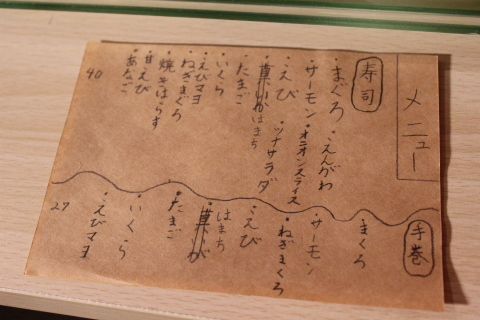 メニュー
寿司
・まぐろ ・えんがわ
・サーモン ・オニオンスライス
・えび ・ツナサラダ
はまち
・たまご
・いくら
・えびマヨ
・ねぎまぐろ
・焼きはらす
・甘えび
・あなご
40
手巻
・まぐろ
・サーモン
・ねぎまぐろ
・えび
はまち
・たまご
・いくら
・えびマヨ
27